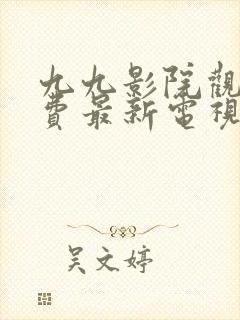 九九影院觀
費最新電視
吴文婷